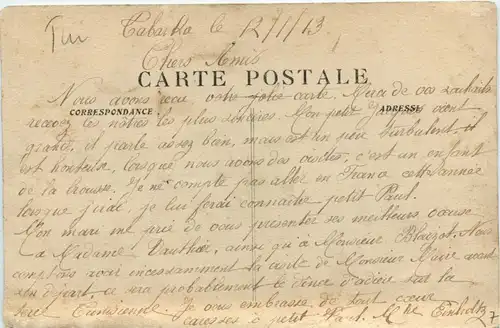 Tabarka le 12/1/13
Chers Amis
CARTE POSTALE
Nous avons reçu votre jolie carte. Merci de vos souhaits
CORRESPONDANCE
ADRESSE
recevez les nôtres les plus sincères. Mon petit Jacques
grandit, il parle assez bien, mais est un peu turbulent, il
est honteux, lorsque nous avons des visites, c'est un enfant
de la brousse. Je ne compte pas aller en France cette année
lorsque j'irai, je lui ferai connaître petit Paul.
Mon mari me prie de vous présenter ses meilleurs vœux.
à Madame Vauthier, ainsi qu'à Monsieur Blaizot. Nous
comptons avoir incessamment la visite de Monsieur Maire avant
son départ, ce sera probablement le dîner d'adieu sur la
terre Tunisienne. Je vous embrasse de tout cœur
Caresses à petit Paul. Mme